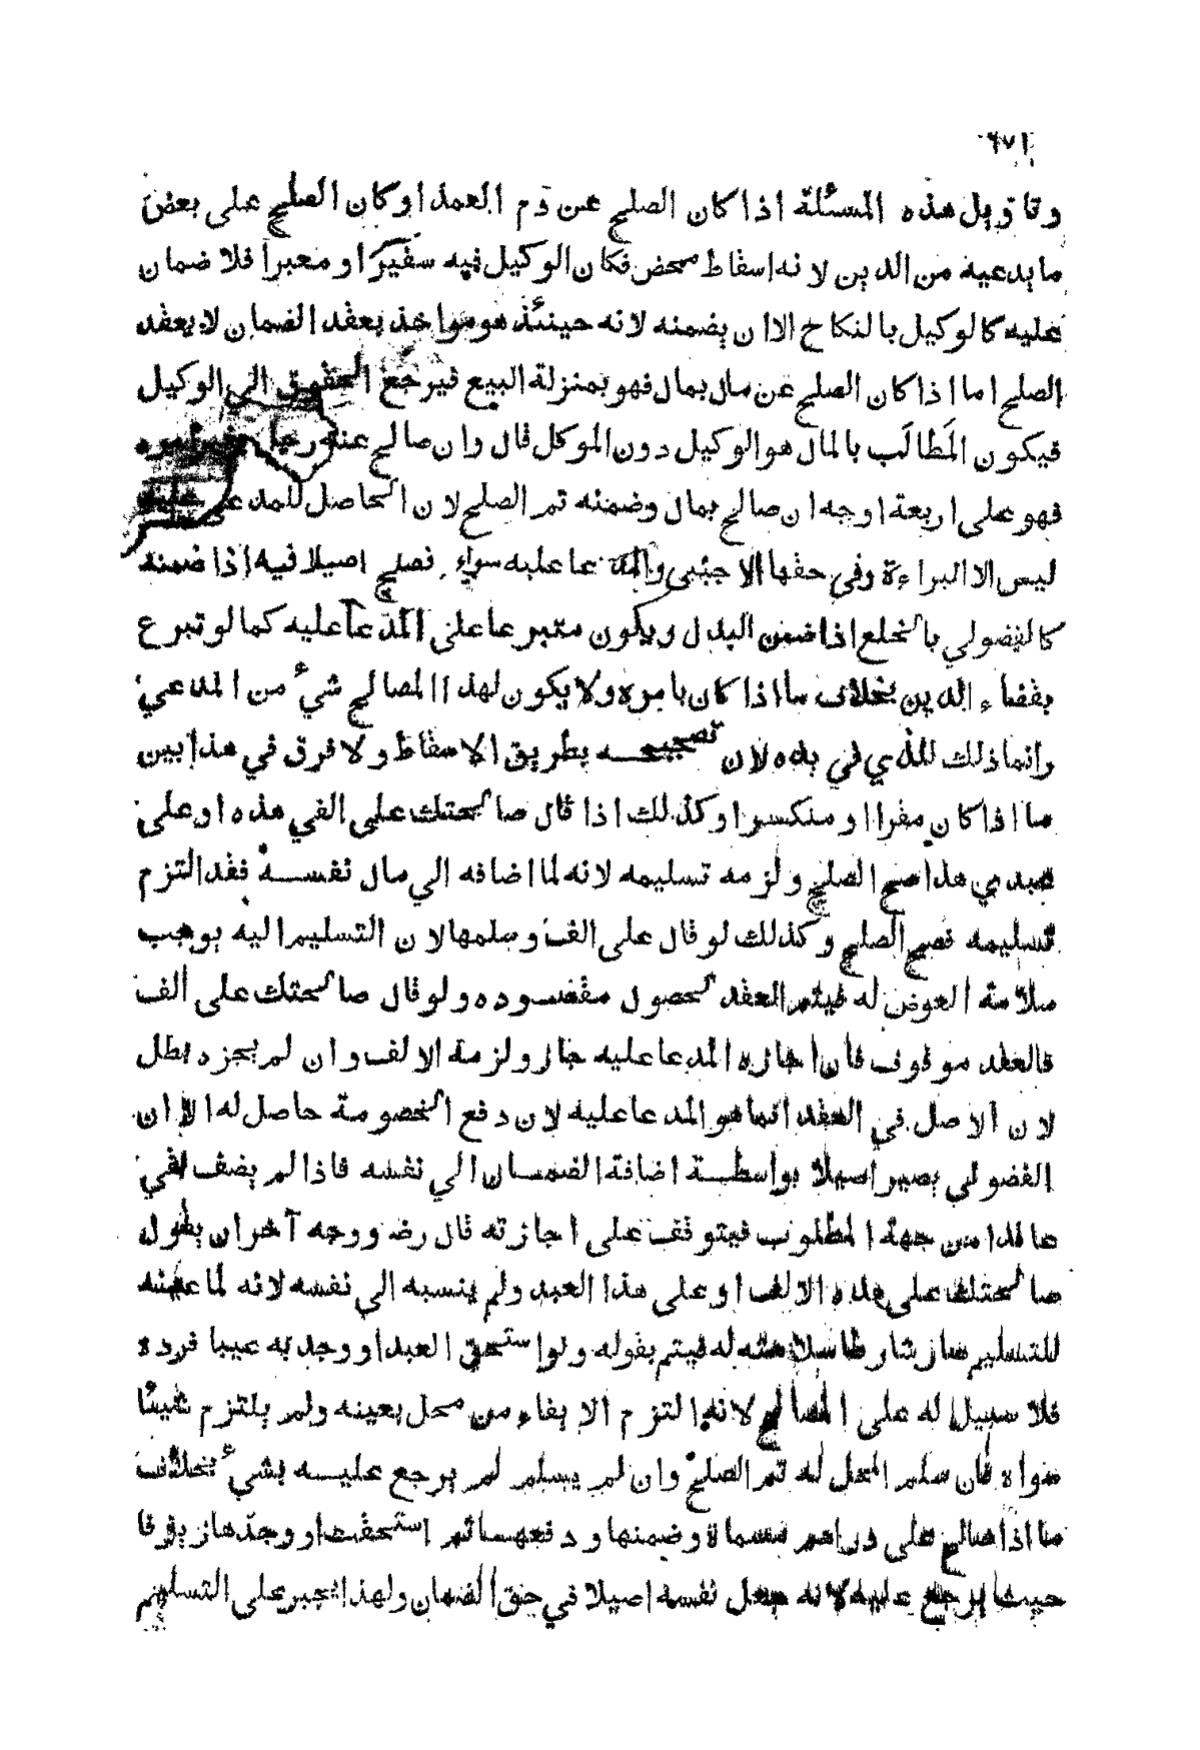 ٦٧١
وتاويل هذه المسئلة اذا كان الصلح عن دم العمد او كان الصلح على بعض
ما يدعيه من الدين لانه اسقاط محض فكان الوكيل فيه سفيرا او معبرا فلا ضمان
عليه كالوكيل بالنكاح الا ان يضمنه لانه حينئذ هو مواخذ بعقد الضمان لا بعقد
الصلح اما اذا كان الصلح عن مال بمال فهو بمنزلة البيع فيرجع الحقوق الى الوكيل
فيكون المطالب بالمال هو الوكيل دون الموكل قال وان صالح عنه رجل بغير امره
فهو على اربعة اوجه ان صالح بمال وضمنه تم الصلح لان الحاصل للمدعى عليه
ليس الا البراءة وفى حقها الاجنبى والمدعا عليه سواء فصلح اصيلا فيه اذا ضمنه
كالفضولي بالخلع اذا ضمن البدل ويكون متبرعا على المدعا عليه كما لو تبرع
بقضاء الدين بخلاف ما اذا كان بامره ولا يكون لهذا المصالح شيء من المدعي
وانما ذلك للذي في يده لان تصحيحه بطريق الاسقاط ولا فرق في هذا بين
ما اذا كان مقرا او منكسرا وكذلك اذا قال صالحتك على الفي هذه او على
عبدي هذا صح الصلح ولزمه تسليمه لانه لما اضافه الي مال نفسه فقد التزم
تسليمه فصح الصلح وكذلك لو قال على الف وسلمها لان التسليم اليه يوجب
سلامة العوض له فيتم العقد لحصول مقصوده ولو قال صالحتك على الف
فالعقد موقوف فان اجازه المدعا عليه جاز ولزمة الالف وان لم يجزه بطل
لان الاصل في العقد انما هو المدعا عليه لان دفع الخصومة حاصل له الا ان
الفضولي يصير اصيلا بواسطة اضافة الضمان الي نفسه فاذا لم يضف بقي
عاقدا من جهة المطلوب فيتوقف على اجازته قال رضـ ووجه آخر ان يقول
صالحتك على هذه الالف او على هذا العبد ولم ينسبه الي نفسه لانه لما عينه
للتسليم صار شارطا سلامته له فيتم بقوله ولو استحق العبد او وجد به عيبا فرده
فلا سبيل له على المصالح لانه التزم الايفاء من محل بعينه ولم يلتزم شيئا
سواه فان سلم المحل له تم الصلح وان لم يسلم لم يرجع عليه بشيء بخلاف
ما اذا صالح على دراهم مسماة وضمنها ودفعها ثم استحقت او وجدها زيوفا
حيث يرجع عليه لانه جعل نفسه اصيلا في حق الضمان ولهذا يجبر على التسليم